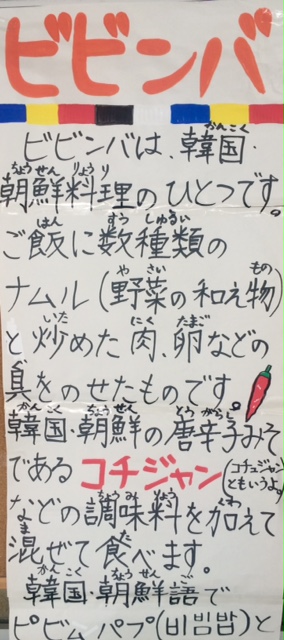 ビビンバ
ビビンバは、韓国・
朝鮮料理のひとつです。
ご飯に数種類の
ナムル(野菜の和え物)
と、炒めた肉、卵などの
具をのせたものです。
韓国・朝鮮の唐辛子みそ
であるコチジャン(コチュジャンともいうよ。)
などの調味料を加えて
混ぜて食べます。
韓国・朝鮮語で
ピビムパプ(비빔밥)と